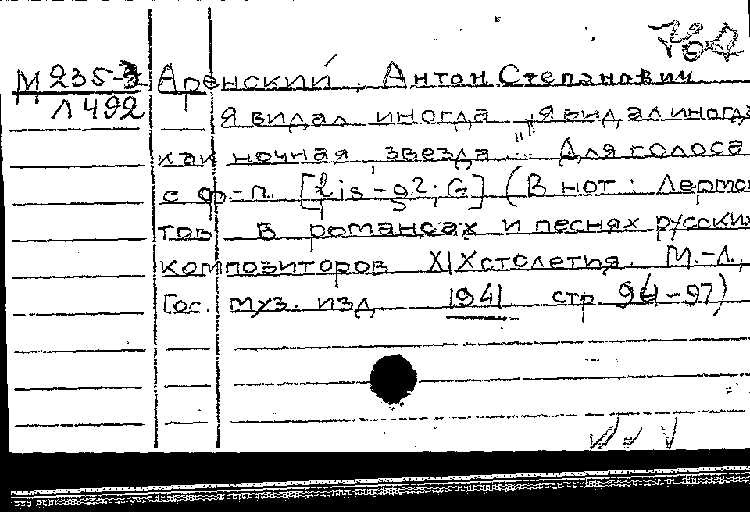 М 235-3 Аренский, Антон Степанович
Л 492 Я видал иногда „Я видал иногда
как ночная звезда..." Для голоса
с ф-п. [fis-g2; G] (В нот: Лермон
тов в романсах и песнях русских
композиторов XIX столетия. М.-Л.,
Гос. муз. изд 1941 стр. 94-97)